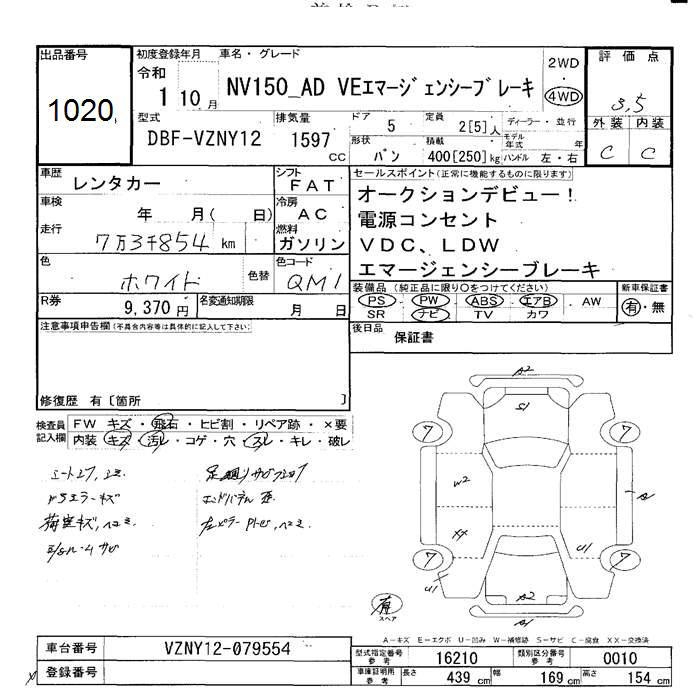 出品番号
1020
初度登録年月
令和
1 10 月
車名・グレード
NV150_AD VEエマージェンシーブレーキ
2WD
・
4WD
評価点
3.5
外装 内装
C C
型式
DBF-VZNY12
排気量
1597 cc
ドア
5
定員
2[5]人
ディーラー・並行
形状
バン
積載
400[250]kg
モデル年式 年
ハンドル 左・右
車歴
レンタカー
シフト
FAT
車検
年 月( 日)
冷房
AC
走行
7万3千854 km
燃料
ガソリン
色
ホワイト
色替
色コード
QM1
R券
9,370円
名変通知期限
月 日
セールスポイント(正常に機能するものに限ります)
オークションデビュー!
電源コンセント
VDC、LDW
エマージェンシーブレーキ
装備品 (純正品に限り○をつけてください)
PS ・ PW ・ ABS ・ エアB ・ AW
SR ナビ TV カワ
新車保証書
有・無
後日品
保証書
注意事項申告欄(不具合内容等は具体的に記入して下さい)
修復歴 有〔箇所 〕
検査員記入欄
FW キズ・飛石・ヒビ割・リペア跡・×要
内装 キズ・汚レ・コゲ・穴・スレ・キレ・破レ
荷室キズ、ヘコミ
A2
S1
7 7
W2
A
XX
U1
7 7
U1
A2
A1
有
スペア
A-キズ E-エクボ U-凹み W-補修跡 S-サビ C-腐食 XX-交換済
車台番号
VZNY12-079554
登録番号
型式指定番号 参考
16210
類別区分番号 参考
0010
車庫証明用 参考
長さ 439 cm 幅 169 cm 高さ 154 cm